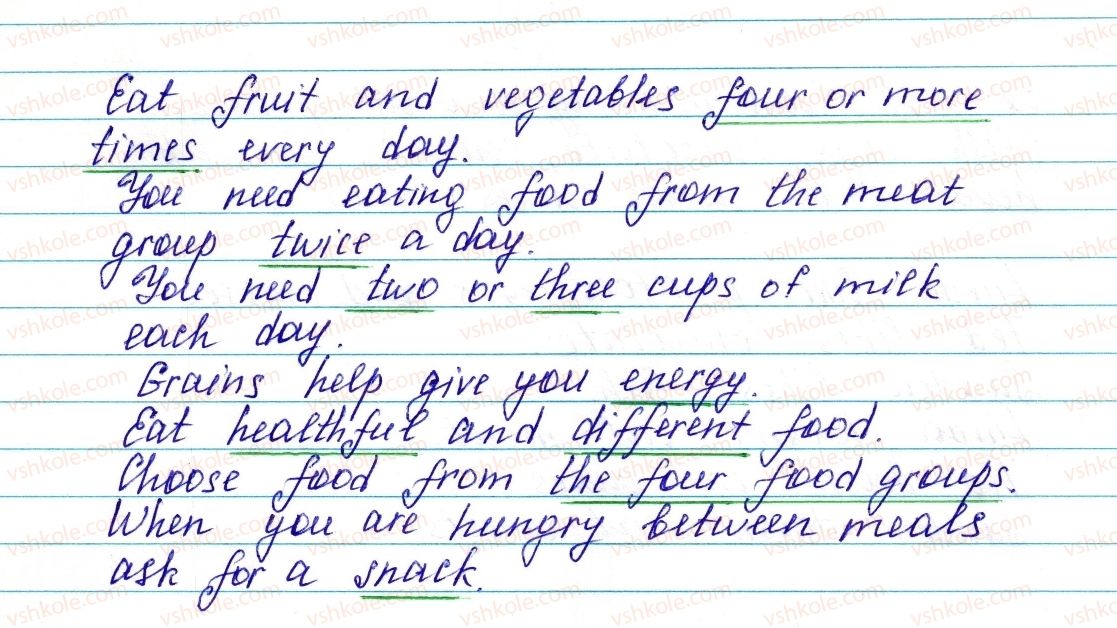 Eat fruit and vegetables four or more
times every day.
You need eating food from the meat
group twice a day.
You need two or three cups of milk
each day.
Grains help give you energy.
Eat healthful and different food.
Choose food from the four food groups.
When you are hungry between meals
ask for a snack.